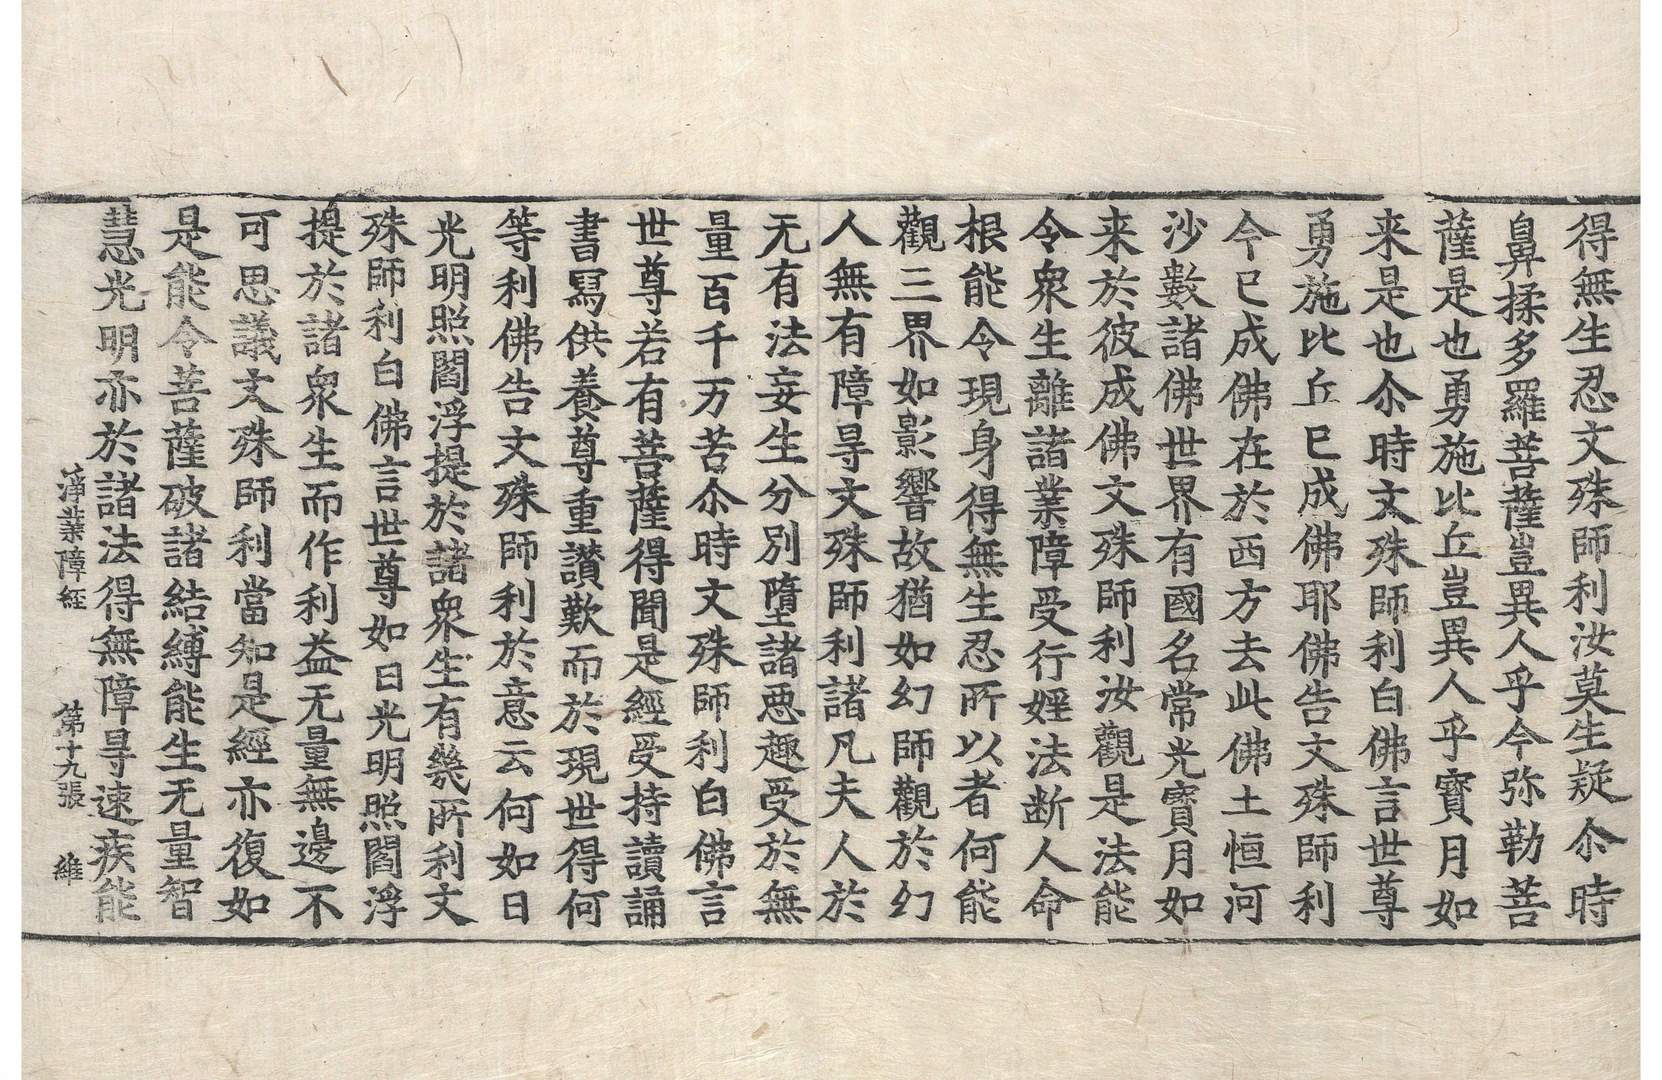 得無生忍文殊師利汝莫生疑尒時
鼻揉多羅菩薩豈異人乎今弥勒菩
薩是也勇施比丘豈異人乎寶月如
来是也尒時文殊師利白佛言世尊
勇施比丘已成佛耶佛告文殊師利
今已成佛在於西方去此佛土恒河
沙數諸佛世界有國名常光寶月如
来於彼成佛文殊師利汝觀是法能
令衆生離諸業障受行婬法断人命
根能令現身得無生忍所以者何能
觀三界如影響故猶如幻師觀於幻
人無有障㝵文殊師利諸凡夫人於
无有法妄生分別墮諸惡趣受於無
量百千万苦尒時文殊師利白佛言
世尊若有菩薩得聞是經受持讀誦
書寫供養尊重讃歎而於現世得何
等利佛告文殊師利於意云何如日
光明照閻浮提於諸衆生有幾所利文
殊師利白佛言世尊如日光明照閻浮
提於諸衆生而作利益无量無邊不
可思議文殊師利當知是經亦復如
是能令菩薩破諸結縛能生无量智
慧光明亦於諸法得無障㝵速疾能
淨業障経 第十九張 維